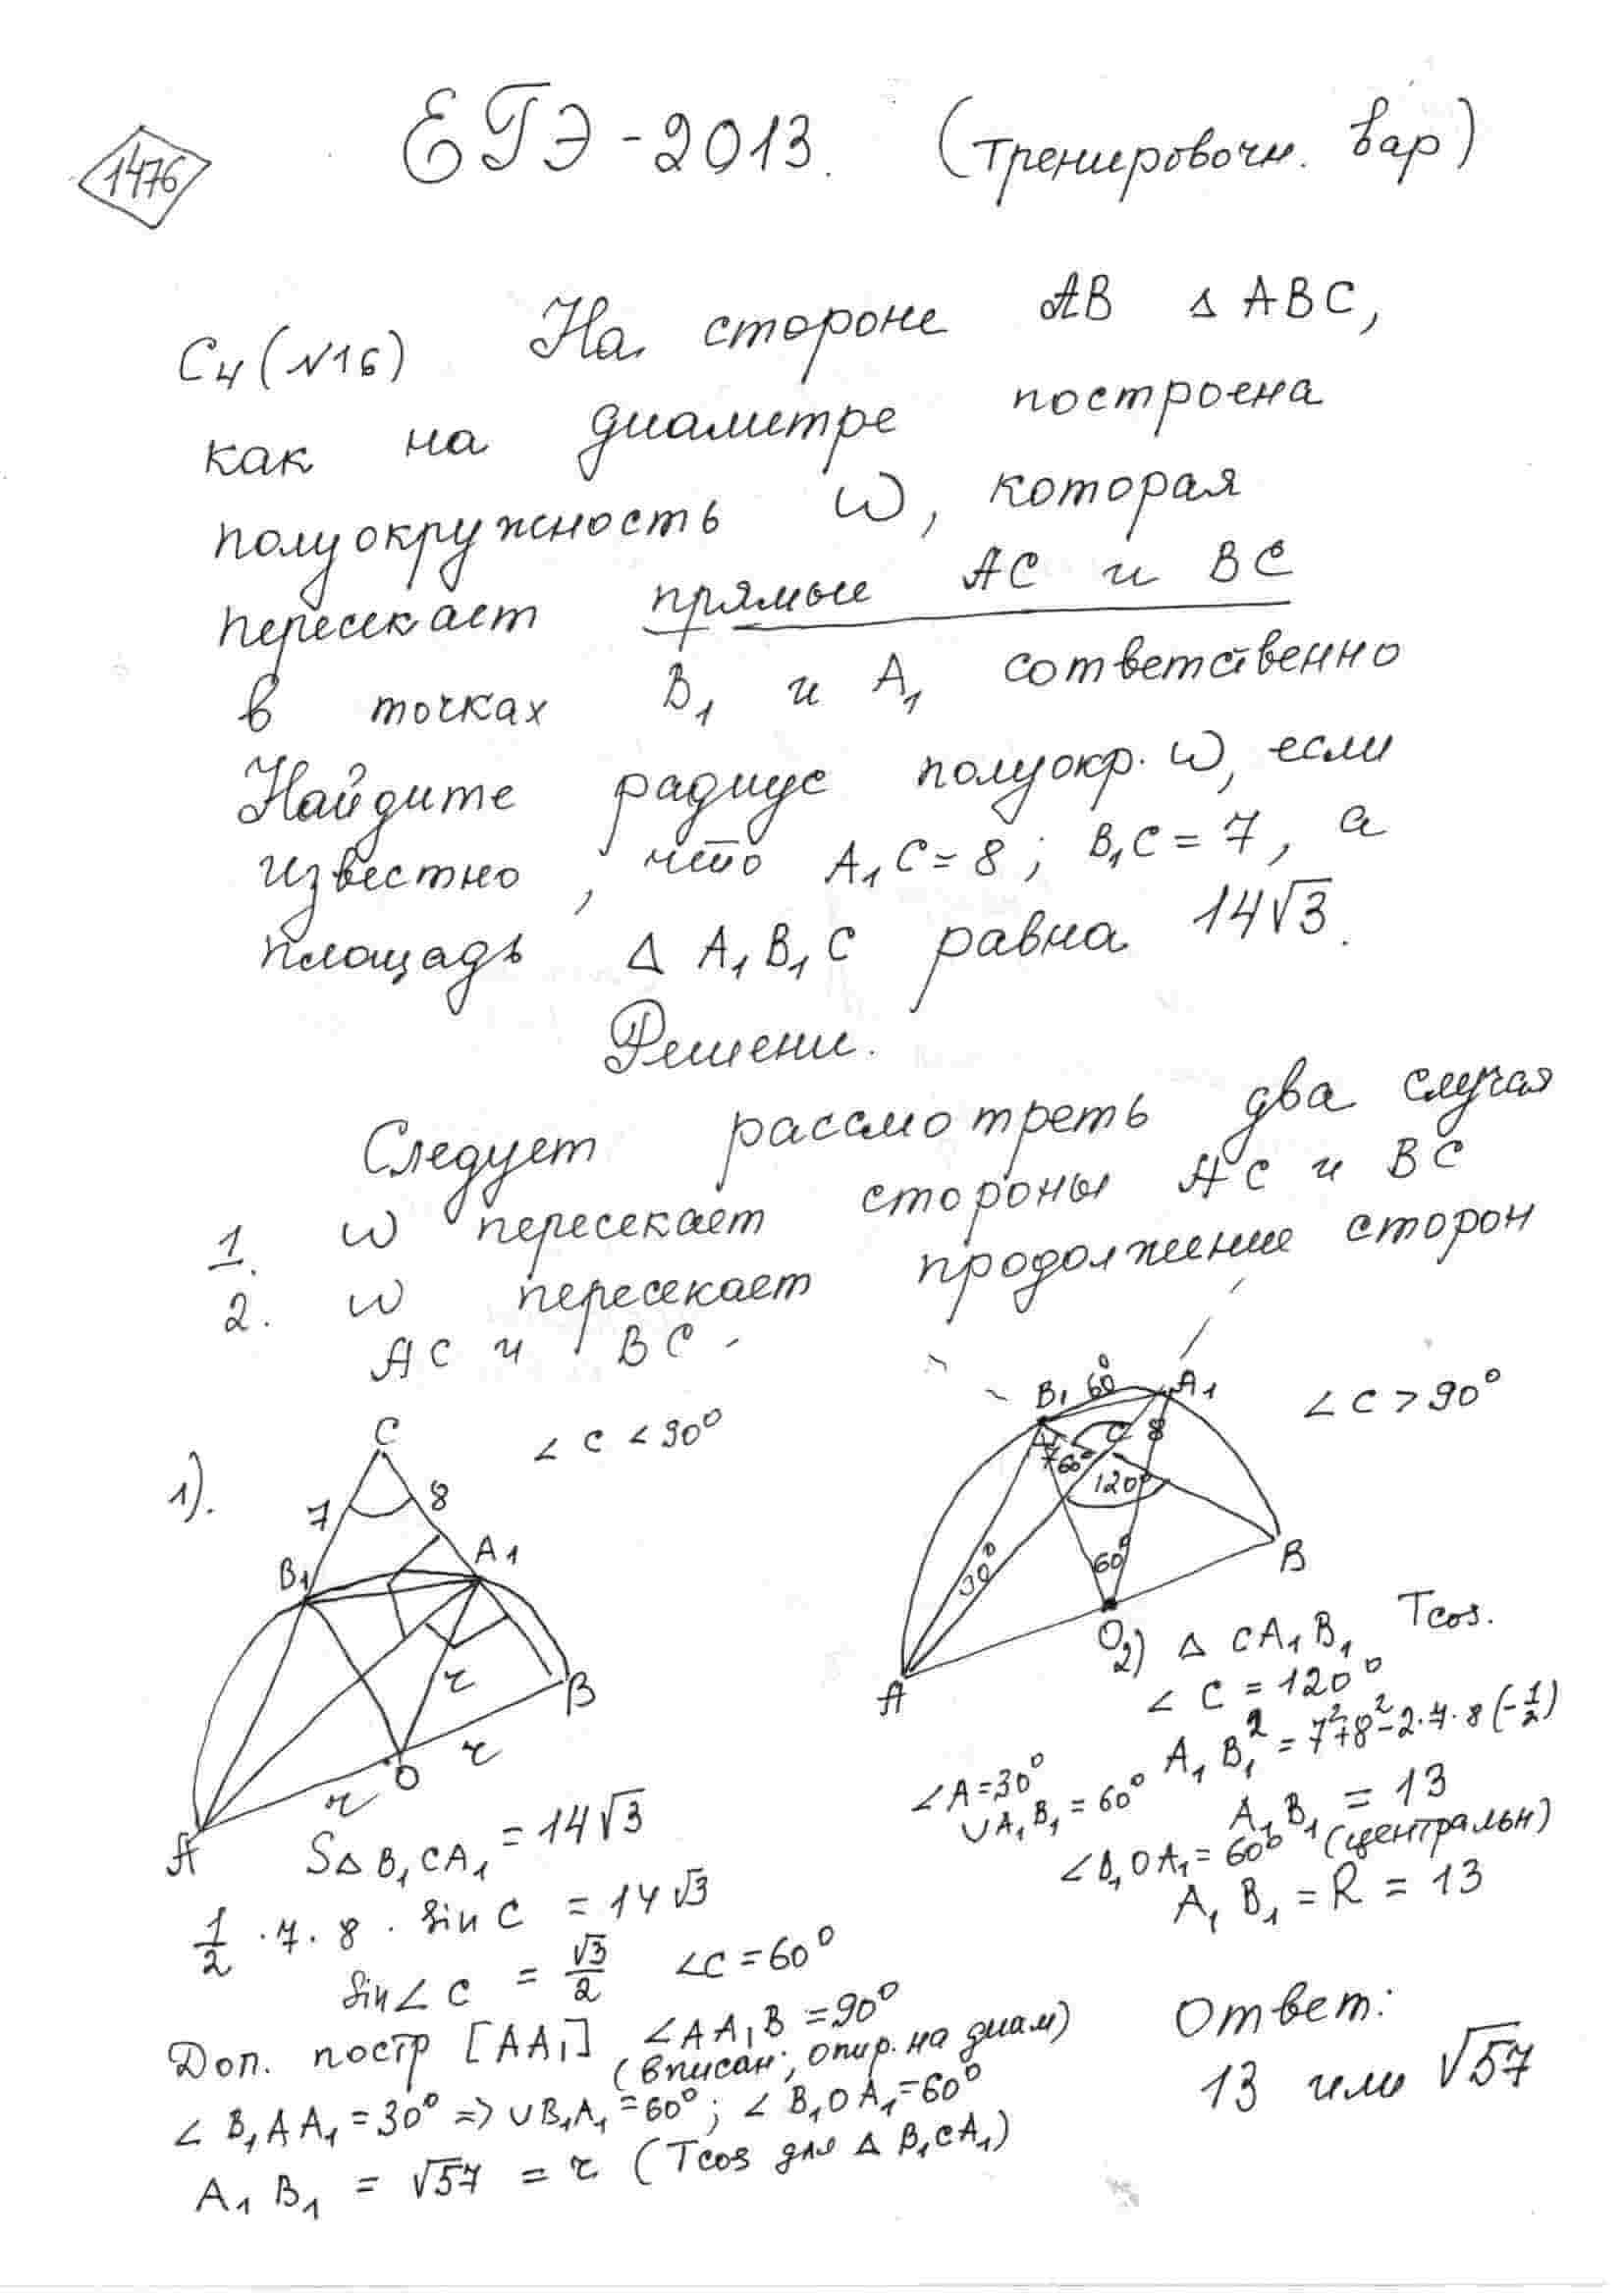 1476
ЕГЭ-2013. (тренировочн. вар)
C4 (№16) На стороне AB Δ ABC,
как на диаметре построена
полуокружность ω, которая
пересекает прямые AC и BC
в точках B₁ и A₁ сответственно
Найдите радиус полуокр. ω, если
известно, что A₁C = 8; B₁C = 7, а
площадь Δ A₁B₁C равна 14√3.
Решени.
Следует рассмотреть два случая
1. ω пересекает стороны AC и BC
2. ω пересекает продолжение сторон
AC и BC -
1). ∠C < 90°
C
7
8
B₁
A₁
r
B
r
O
r
A
∠C > 90°
B₁
60°
A₁
C
8
7
60°
120°
30°
60°
B
O
A
S Δ B₁CA₁ = 14√3
1/2 · 7 · 8 · Sin C = 14√3
Sin∠C = √3/2 ∠C = 60°
Доп. постр [AA₁] ∠AA₁B = 90°
(вписан; опир. на диам)
∠B₁AA₁ = 30° => ∪B₁A₁ = 60°; ∠B₁OA₁ = 60°
A₁B₁ = √57 = r (Tcos для Δ B₁CA₁)
2) Δ CA₁B₁ Tcos.
∠C = 120°
A₁B₁² = 7²+8²-2·7·8(-1/2)
A₁B₁ = 13
∠A = 30°
∪A₁B₁ = 60°
∠B₁OA₁ = 60° (центральн)
A₁B₁ = R = 13
Ответ:
13 или √57